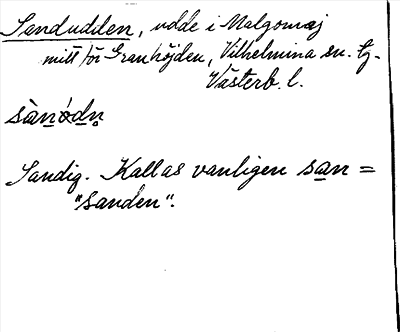 Sandudden, udde i Malgomaj
mitt för Granhöjden, Vilhelmina sn. tg.
Västerb. l.
sànódn̥
Sandig. Kallas vanligen san =
"sanden".